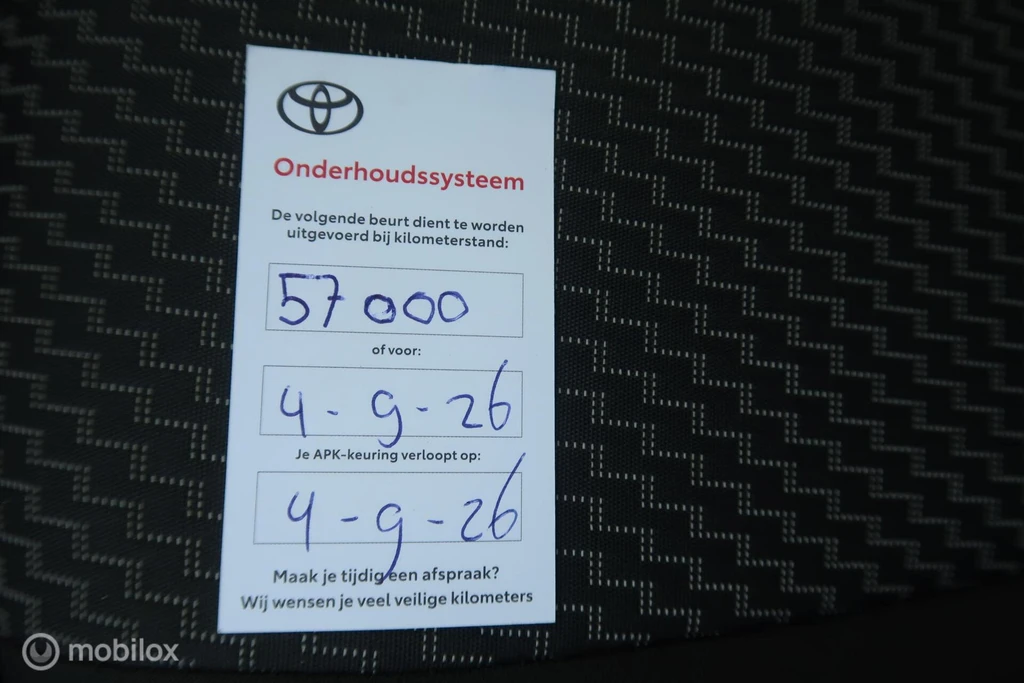 Onderhoudssysteem
De volgende beurt dient te worden
uitgevoerd bij kilometerstand:
57 000
of voor:
4 - 9 - 26
Je APK-keuring verloopt op:
4 - 9 - 26
Maak je tijdig een afspraak?
Wij wensen je veel veilige kilometers
mobilox